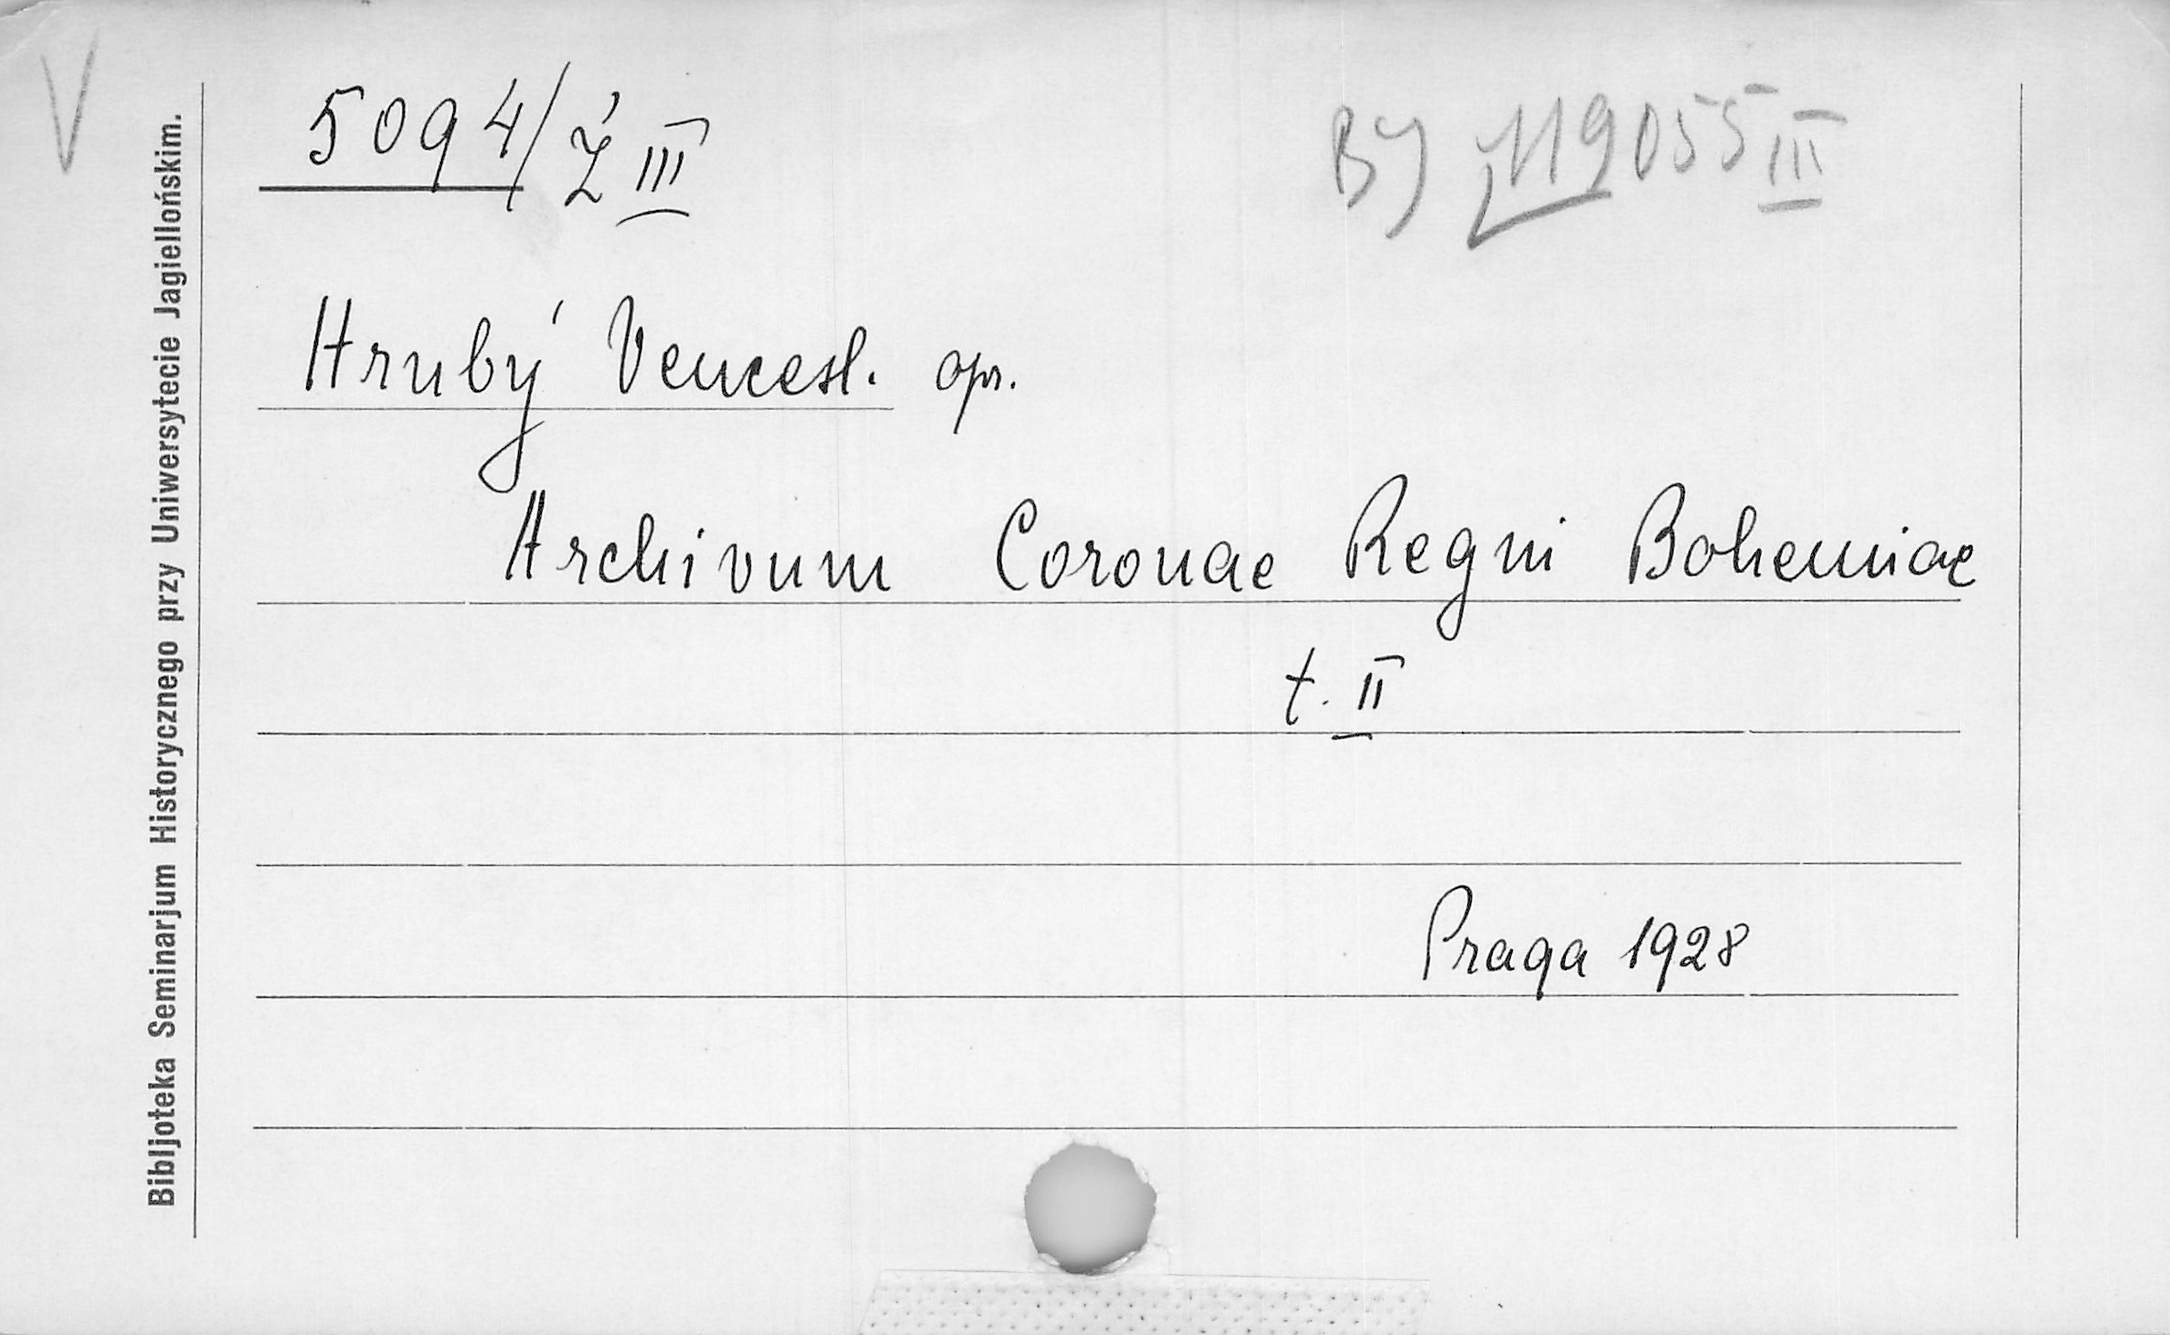 V
5094/Ź III
BJ 119055 III
Hrubý Vencesl. opr.
Archivum Coronae Regni Bohemiae
t. II
Praga 1928
Bibljoteka Seminarjum Historycznego przy Uniwersytecie Jagiellońskim.